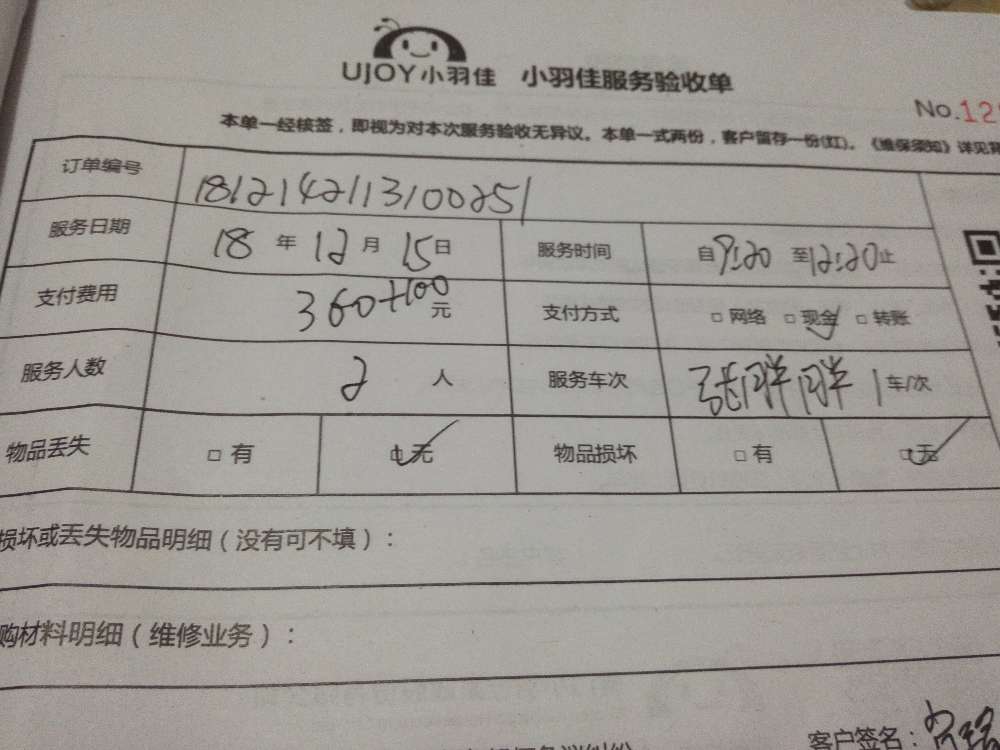 UJOY小羽佳 小羽佳服务验收单
No.12
本单一经核签，即视为对本次服务验收无异议。本单一式两份，客户留存一份(红)。《维保须知》详见
订单编号 1812142113100251
服务日期 18 年 12 月 15 日 服务时间 自9:20 至12:20止
支付费用 360+100 元 支付方式 □ 网络 □ 现金 □ 转账
服务人数 2 人 服务车次 张胖胖 1 车/次
物品丢失 □ 有 □ 无 物品损坏 □ 有 □ 无
损坏或丢失物品明细（没有可不填）：
购材料明细（维修业务）：
客户签名：